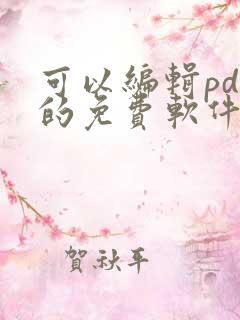 可以編輯pd
的免費軟件
賀秋平